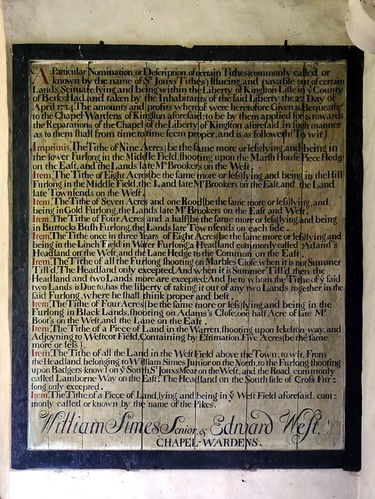 A Particular Nomination, or Description, of certain Tithes (commonly called or
known by the name of St John's Tithes) Issueing and payable out of certain
Lands, Scituate lying and being within the Liberty of Kingston-Lisle in ye County
of Berks, Had and taken by the Inhabitants of the said Liberty the 27 Day of
April 1734. The amounts and profits whereof were heretofore Given & Bequeath'd
to the Chapel-Wardens of Kingston aforesaid; to be by them applied for & towards
the Reparations of the Chapel of the Liberty of Kingston aforesaid, in such manner
as to them shall from time to time seem proper, and is as followeth (to wit)
Imprimis, The Tithe of Nine Acres (be the same more or less) lying and being in
the lower Furlong in the Middle Field, shooting upon the Marsh House Piece Hedg
on the East, and the Lands late Mr Brookers on the West.
Item, The Tithe of Eight Acres (be the same more or less) lying and being in the Hill
Furlong in the Middle Field, the Land late Mr Brookers on the East and the Land
late Townsends on the West.
Item, The Tithe of Seven Acres and one Rood (be the same more or less) lying, and
being in Gold Furlong, the Lands late Mr Brookers on the East and West.
Item, The Tithe of Four Acres and a half (be the same more or less) lying and being
in Burrocks Bush Furlong, the Lands late Townsends on each side.
Item, The Tithe once in three Years of Eight Acres (be the same more or less) lying and
being in the Linch Field in Water Furlong, a Headland commonly called Adam's
Headland on the West, and the Lane Hedge to the Common on the East.
Item, The Tithe of all the Furlong shooting on Marbles Close when it is not Summer
Till'd, The Headland only excepted, And when it is Summer Till'd, then the
Headland and two Lands more are excepted; And he to whom the Tithe of ye said
two Lands is Due to, has the liberty of taking it out of any two Lands together in the
said Furlong, where he shall think proper and best.
Item, The Tithe of Four Acres (be the same more or less) lying and being in the
Furlong in Black Lands, shooting on Adams's Close, one half Acre of late Mr
Boot's on the West, and the Lane on the East.
Item, The Tithe of a Piece of Land in the Warren, shooting upon Ickelton way, and
Adjoyning to Westcot Field, Containing by Estimation Five Acres (be the same
more or less)
Item, The Tithe of all the Land in the West Field above the Town, to wit, From
the Headland belonging to William Simes Junior on the North, to the Furlong shooting
upon Badgers-know on ye South, St John's Meat on the West, and the Road commonly
called Lamborne Way on the East. The Headland on the South side of Cross Fur-
long only excepted.
Item, The Tithe of a Piece of Land, lying and being in ye West Field aforesaid, com:
monly called or known by the name of the Pikes.
William Simes Senior, & Edward West,
CHAPEL-WARDENS.